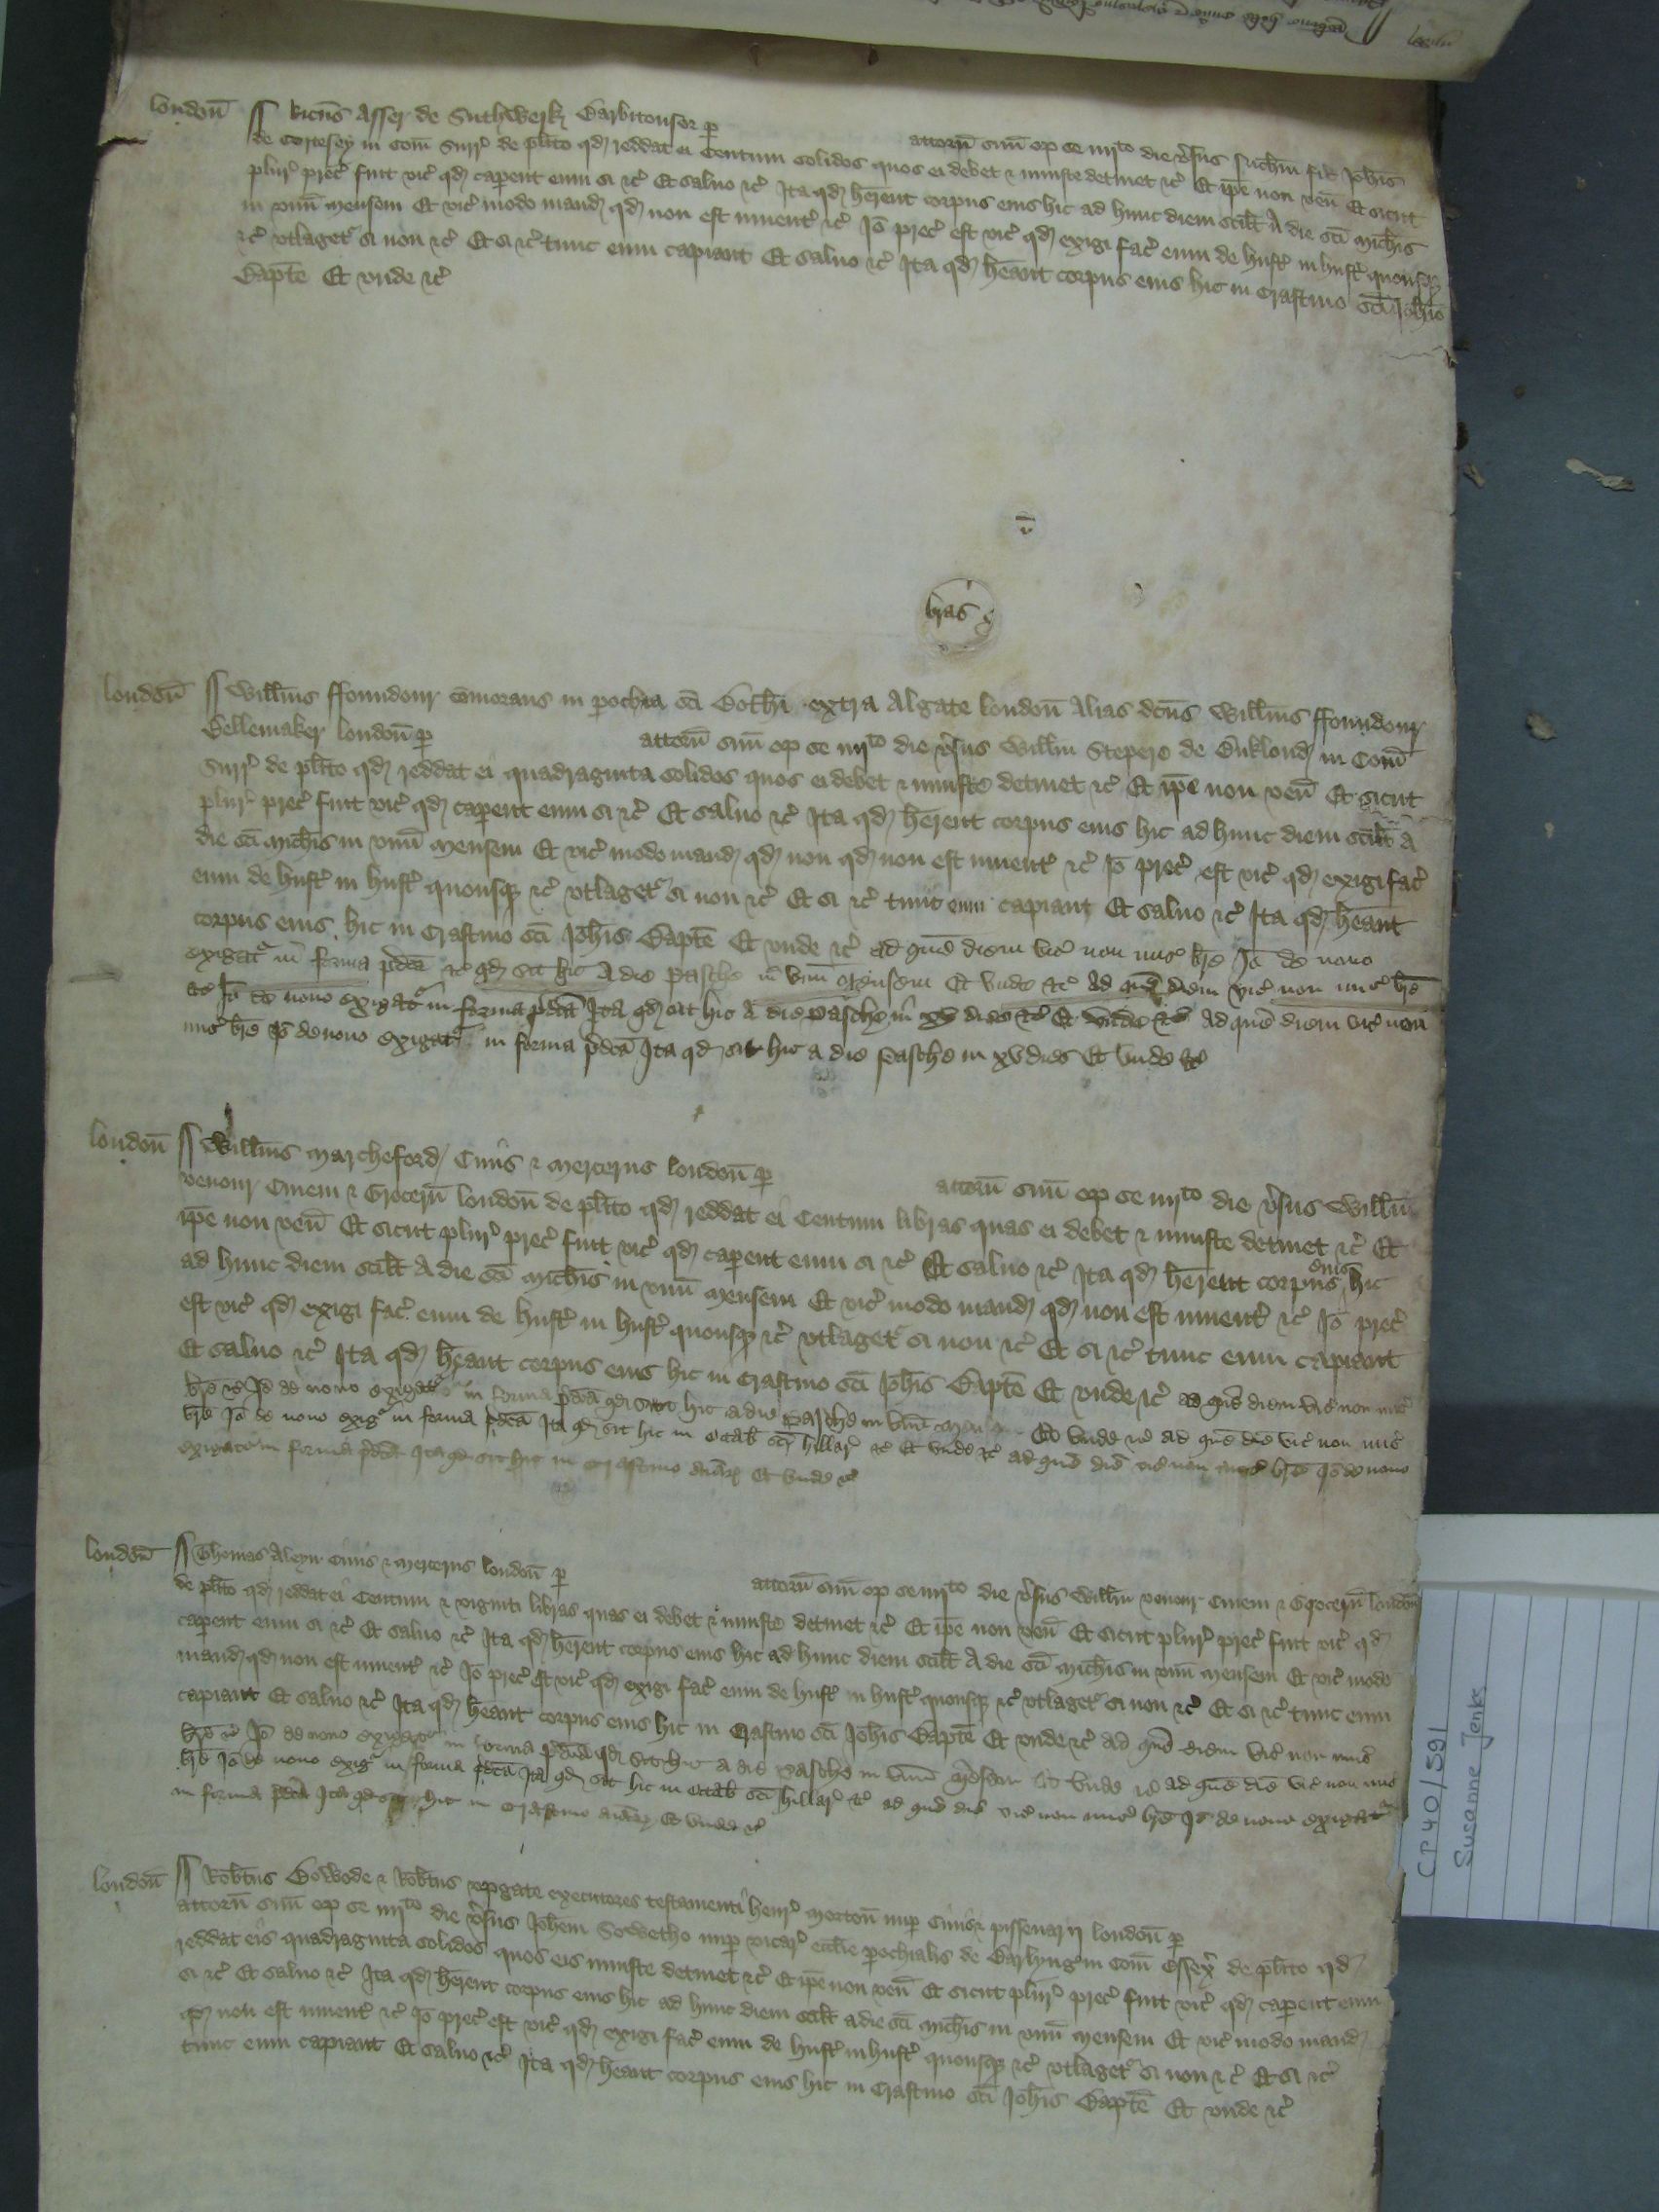 londoñ Ricūs Asser de Suthwerk Barbitonsor p̱ attorñ suū op se iiijto die v̓sus Joh̄is
de Certesey in Com̄ Surr̓ de pl̄ito qd̄ reddat ei Centum solidos quos ei debet & iniuste detinet &c̓ Et ip̄e non ven̄ Et sicut
plur̓ prec̓ fuit vic̓ qd̄ cap̱ent eum si &c̓ Et saluo &c̓ Ita qd̄ hēr̄ent corpus eius hic ad hunc diem scil̄t A die sc̄i Mich̄is
in vnū mensem Et vic̓ modo mand̄ qd̄ non est inuent̓ &c̓ Iō prec̓ est vic̓ qd̄ exigi fac̓ eum de hust̓ in hust̓ quousq̱
&c̓ vtlaget̓ si non &c̓ Et si &c̓ tunc eum capiant Et saluo &c̓ Ita qd̄ hēant corpus eius hic in Crastino sc̄i Joh̄is
Bapt̄e Et vnde &c̓
londoñ Will̄ms ffoundour com̄orans in p̱ochia sc̄i Both̄i extra Algate londoñ Alias dc̄us Will̄ms ffoundour
Bellemaker londoñ p̱ attorñ suū op se iiijto die v̓sus Will̄m Stepere de in Com̄
Surr̓ de pl̄ito qd̄ reddat ei quadraginta solidos quos ei debet & iniuste detinet &c̓ Et ip̄e non ven̄ Et sicut
plur̓ prec̓ fuit vic̓ qd̄ cap̱ent eum si &c̓ Et saluo &c̓ Ita qd̄ hēr̄ent corpus eius hic ad hunc diem scil̄t A
die sc̄i Mich̄is in vnū mensem Et vic̓ modo mand̄ qd̄ non qd̄ non est inuent̓ &c̓ Iō prec̓ est vic̓ qd̄ exigi fac̓
eum de hust̓ in hust̓ quousq̱ &c̓ vtlaget̓ si non &c̓ Et si &c̓ tunc eum capiant Et saluo &c̓ Ita qd̄ hēant
corpus eius hic in Crastino sc̄i Joh̄is Bapt̄e Et vnde &c̓ ad quē diem vic̓ non mis̓ br̄e Iō de nouo
exigat̓ in forma p̓dc̄a &c̓ qd̄ sit hic A die Pasche in vnū Mensem Et vnde &c̓ Ad quē diem vic̓ non mis̓ br̄e
&c̓ Iō de nouo exigat̓ in forma p̓dc̄a Ita qd̄ sit hic A die Pasche in xv dies &c̓ Et vnde &c̓ Ad quē diem vic̓ non
mis̓ br̄e Iō de nouo exigat̓ in forma p̓dc̄a Ita qd̄ sit hic a die Pasche in xv dies Et vnde &c̓
londoñ Will̄ms Marcheford Ciuis & mercerus londoñ p̱ attorñ suū op se iiijto die v̓sus Will̄m
venour Ciuem & Grocerū londoñ de pl̄ito qd̄ reddat ei Centum libras quas ei debet & iniuste detinet &c̓ Et
ip̄e non ven̄ Et sicut plur̓ prec̓ fuit vic̓ qd̄ cap̱ent eum si &c̓ Et saluo &c̓ Ita qd̄ hēr̄ent corpus eius hic
ad hunc diem scil̄t A die sc̄i Mich̄is in vnū Mensem Et vic̓ modo mand̄ qd̄ non est inuent̓ &c̓ Iō prec̓
est vic̓ qd̄ exigi fac̓ eum de hust̓ in hust̓ quousq̱ &c̓ vtlaget̓ si non &c̓ Et si &c̓ tunc eum capiant
Et saluo &c̓ Ita qd̄ hēant corpus eius hic in Crastino sc̄i Joh̄is Bapt̄e Et vnde &c̓ ad quē diem vic̓ non mis̓
br̄e &c̓ Iō de nouo exigat̓ in forma p̓dc̄a qd̄ sit hic a die Pasche in vnū Et vnde &c̓ ad quē diē vic̓ non mis̓
br̄e Iō de nouo exig̓ in forma p̓dc̄a Ita qd̄ sit hic in octab̄ sc̄i Hillar̓ &c̓ Et vnde &c̓ ad quē diē vic̓ non mis̓ br̄e Iō de nouo
exigat̓ in forma p̓dc̄a Ita qd̄ sit hic in Crastino Et vnde &c̓
londoñ Thomas Aleyn Ciuis & mercerus londoñ p̱ attorñ suū op se iiijto die v̓sus Will̄m venour Ciuem & Grocerū londoñ
de pl̄ito qd̄ reddat ei Centum & viginti libras quas ei debet & iniuste detinet &c̓ Et ip̄e non ven̄ Et sicut plur̓ prec̓ fuit vic̓ qd̄
cap̱ent eum si &c̓ Et saluo &c̓ Ita qd̄ hēr̄ent corpus eius hic ad hunc diem scil̄t A die sc̄i Mich̄is in vnū mensem Et vic̓ modo
mand̄ qd̄ non est inuent̓ &c̓ Iō prec̓ est vic̓ qd̄ exigi fac̓ eum de hust̓ in hust̓ quousq̱ &c̓ vtlaget̓ si non &c̓ Et si &c̓ tunc eum
capiant Et saluo &c̓ Ita qd̄ hēant corpus eius hic in Crastino sc̄i Joh̄is Bapt̄e Et vnde &c̓ ad quē diem vic̓ non mis̓
br̄e &c̓ Iō de nouo exigat̓ in forma p̓dc̄a qd̄ sit hic a die Pasche in vnū Mensem Et vnde &c̓ ad quē diē vic̓ non mis̓
br̄e Iō de nouo exig̓ in forma p̓dc̄a Ita qd̄ sit hic in octab̄ sc̄i Hillar̓ &c̓ ad quē diē vic̓ non mis̓ br̄e Iō de nouo exigat̓
in forma p̓dc̄a Ita qd̄ sit hic in Crastino Et vnde &c̓
londoñ Rob̄tus Bowode & Rob̄tus vpgate executores testamenti Henr̓ Morton̄ nup̱ Ciuis & pissenarij londoñ p̱
attorñ suū op se iiijto die v̓sus Joh̄em nup̱ vicar̓ eccl̄ie p̱ochialis de Barlyng in Com̄ Essex̓ de pl̄ito qd̄
reddat eis quadraginta solidos quos eis iniuste detinet &c̓ Et ip̄e non ven̄ Et sicut plur̓ prec̓ fuit vic̓ qd̄ cap̱ent eum
si &c̓ Et saluo &c̓ Ita qd̄ hēr̄ent corpus eius hic ad hunc diem scil̄t a die sc̄i Mich̄is in vnū mensem Et vic̓ modo mand̄
qd̄ non est inuent̓ &c̓ Iō prec̓ est vic̓ qd̄ exigi fac̓ eum de hust̓ in hust̓ quousq̱ &c̓ vtlaget̓ si non &c̓ Et si &c̓
tunc eum capiant Et saluo &c̓ Ita qd̄ hēant corpus eius hic in Crastino sc̄i Joh̄is Bapt̄e Et vnde &c̓
CP 40/591
Susanne Jenks